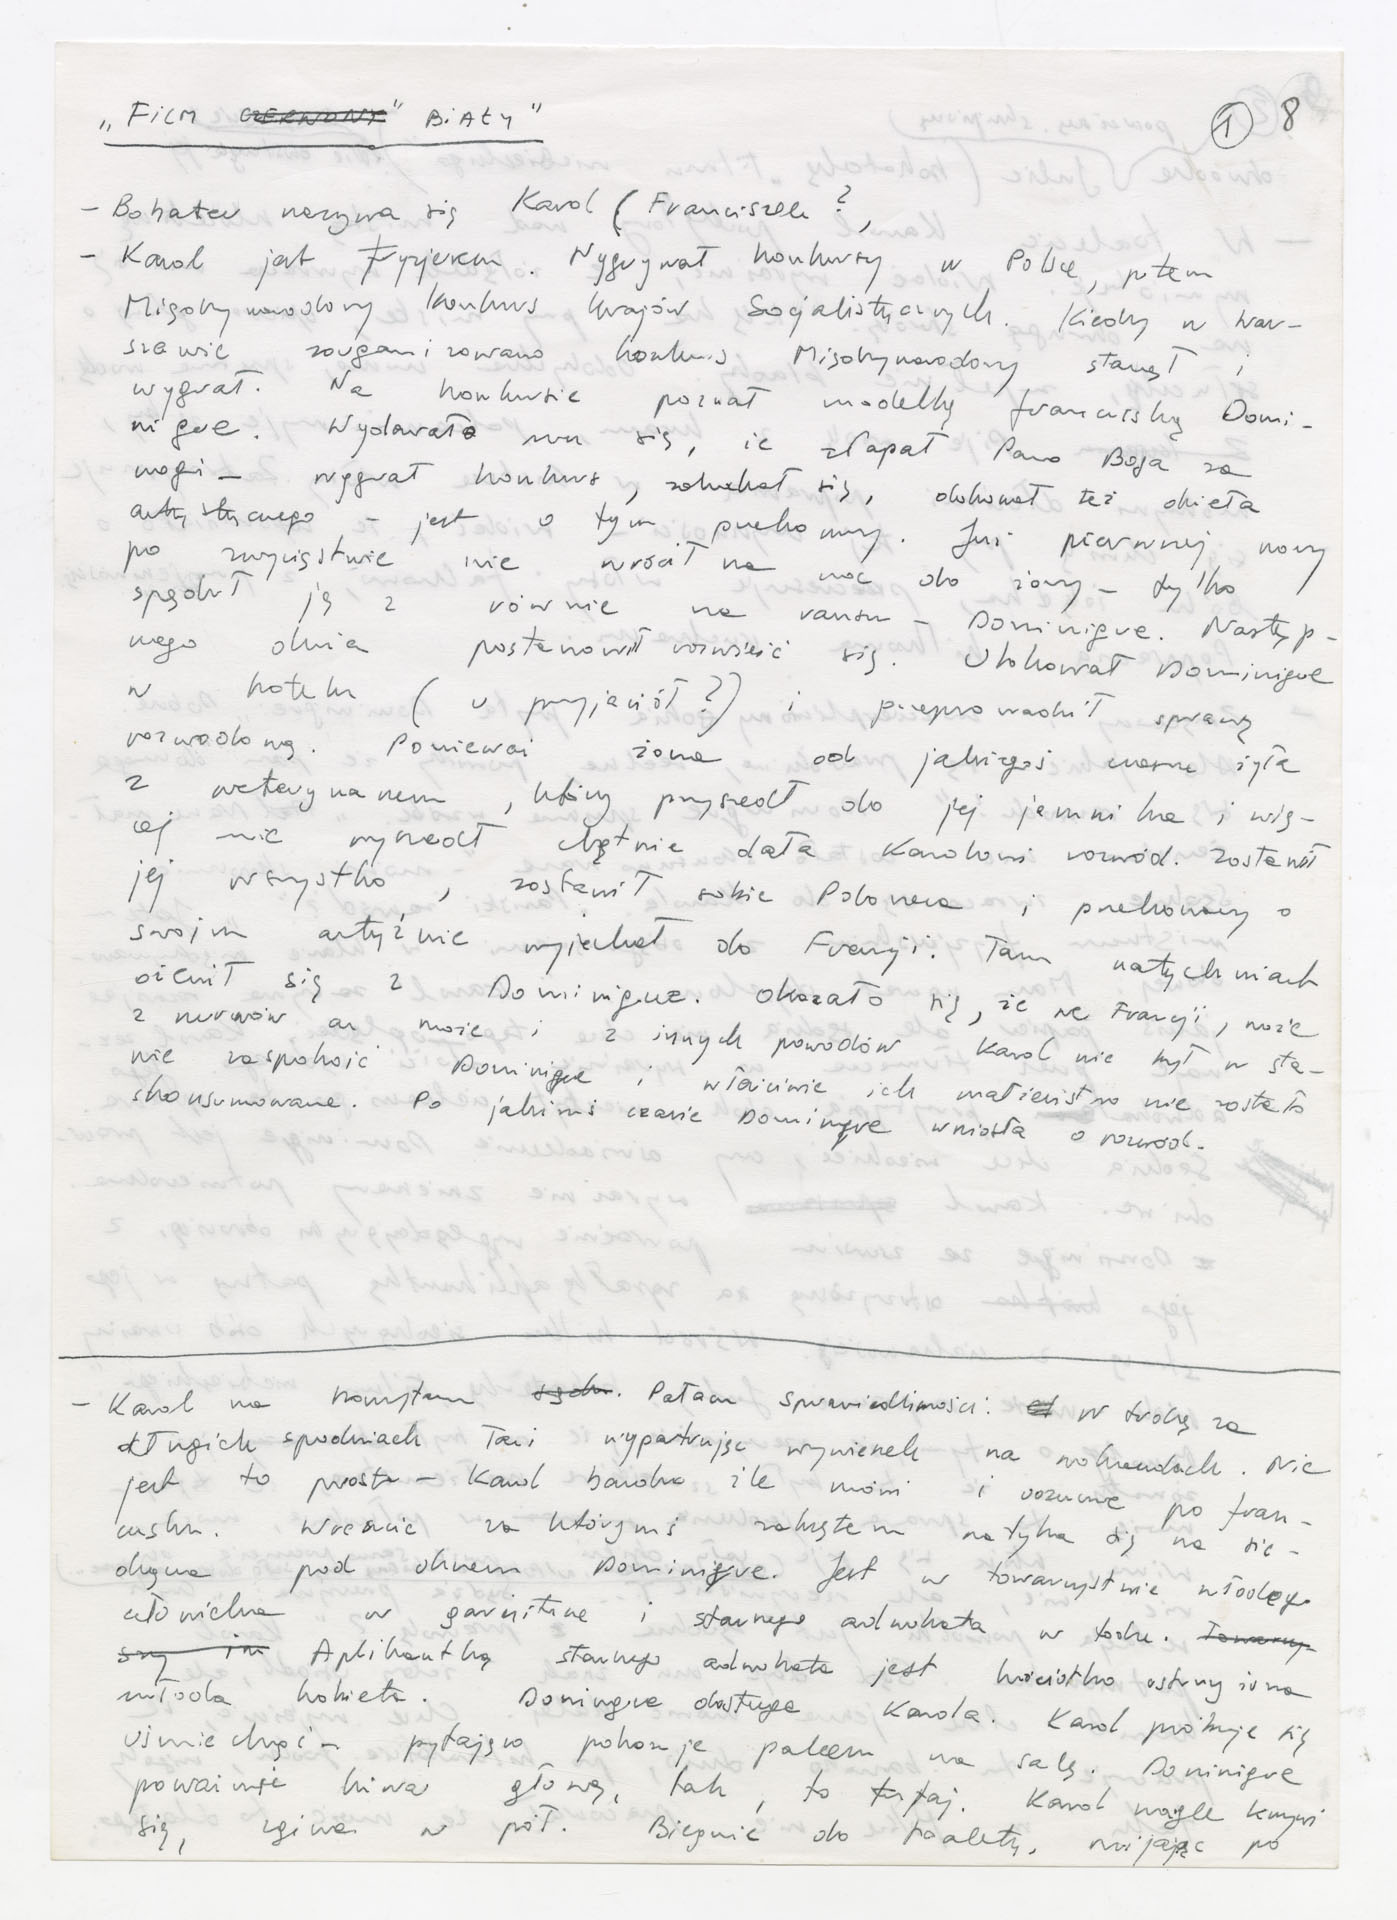 „FILM CZERWONY" BIAŁY"
① 8
– Bohater nazywa się Karol (Franciszek?,
– Karol jest fryzjerem. Wygrywał konkursy w Polsce, potem
Międzynarodowy Konkurs Krajów Socjalistycznych. Kiedy w War-
szawie zorganizowano konkurs Międzynarodowy stanął i
wygrał. Na konkursie poznał modelkę francuską Domi-
nique. Wydawało mu się, że złapał Pana Boga za
nogi – wygrał konkurs, zakochał się, dokonał też dzieła
artystycznego – jest o tym przekonany. Już pierwszej nocy
po zwycięstwie nie wrócił na noc do żony – tylko
spędził ją z równie na rauszu – Dominique. Następ-
nego dnia postanowił rozwieść się. Ulokował Dominique
w hotelu (u przyjaciół?) i przeprowadził sprawę
rozwodową. Ponieważ żona od jakiegoś czasu żyła
z weterynarzem, który przyszedł do jej jamnika i wię-
cej nie wyszedł chętnie dała Karolowi rozwód. Zostawił
jej wszystko, zostawił sobie Poloneza i przekonany o
swoim artyźmie wyjechał do Francji. Tam natychmiast
ożenił się z Dominique. Okazało się, że we Francji, może
z nerwów a może i z innych powodów – Karol nie był w sta-
nie zaspokoić Dominique i właściwie ich małżeństwo nie zostało
skonsumowane. Po jakimś czasie Dominique wniosła o rozwód.
– Karol na korytarzu sądu. Pałacu sprawiedliwości. w trochę za
długich spodniach łazi wypatrując wywieszek na wokandach. Nie
jest to proste – Karol bardzo źle mówi i rozumie po fran-
cusku. Wreszcie za którymś zakrętem natyka się na sie-
dzącą pod oknem Dominique. Jest w towarzystwie młodego
człowieka w garniturze i starszego adwokata w todze. Towarzy-
szy im Aplikantką starszego adwokata jest króciótko ostrzyżona
młoda kobieta. Dominique dostrzega Karola. Karol próbuje się
uśmiechnąć – pytająco pokazuje palcem na salę. Dominique
poważnie kiwa głową, tak, to tutaj. Karol nagle krzywi
się, zgina w pół. Biegnie do toalety, mijając po